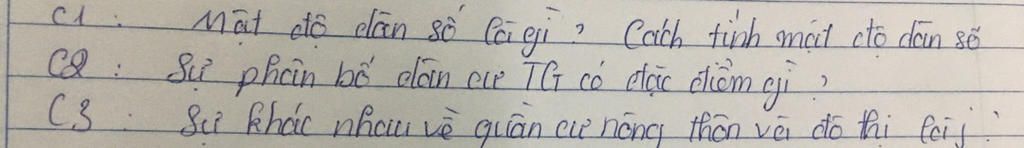 C1 : Mật độ dân số là gì ? Cách tính mật độ dân số
C2 : Sự phân bố dân cư TG có đặc điểm gì ?
C3 : Sự khác nhau về quần cư nông thôn và đô thị là j :